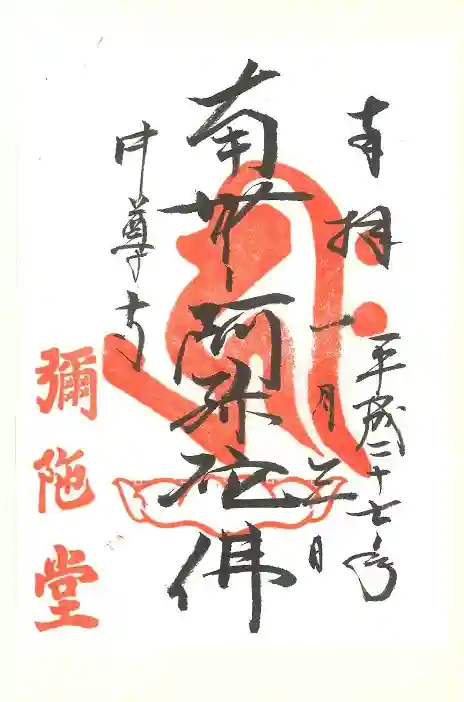 奉拝
平成二十七年
一月三日
南無阿弥陀佛
中尊寺
彌陁堂